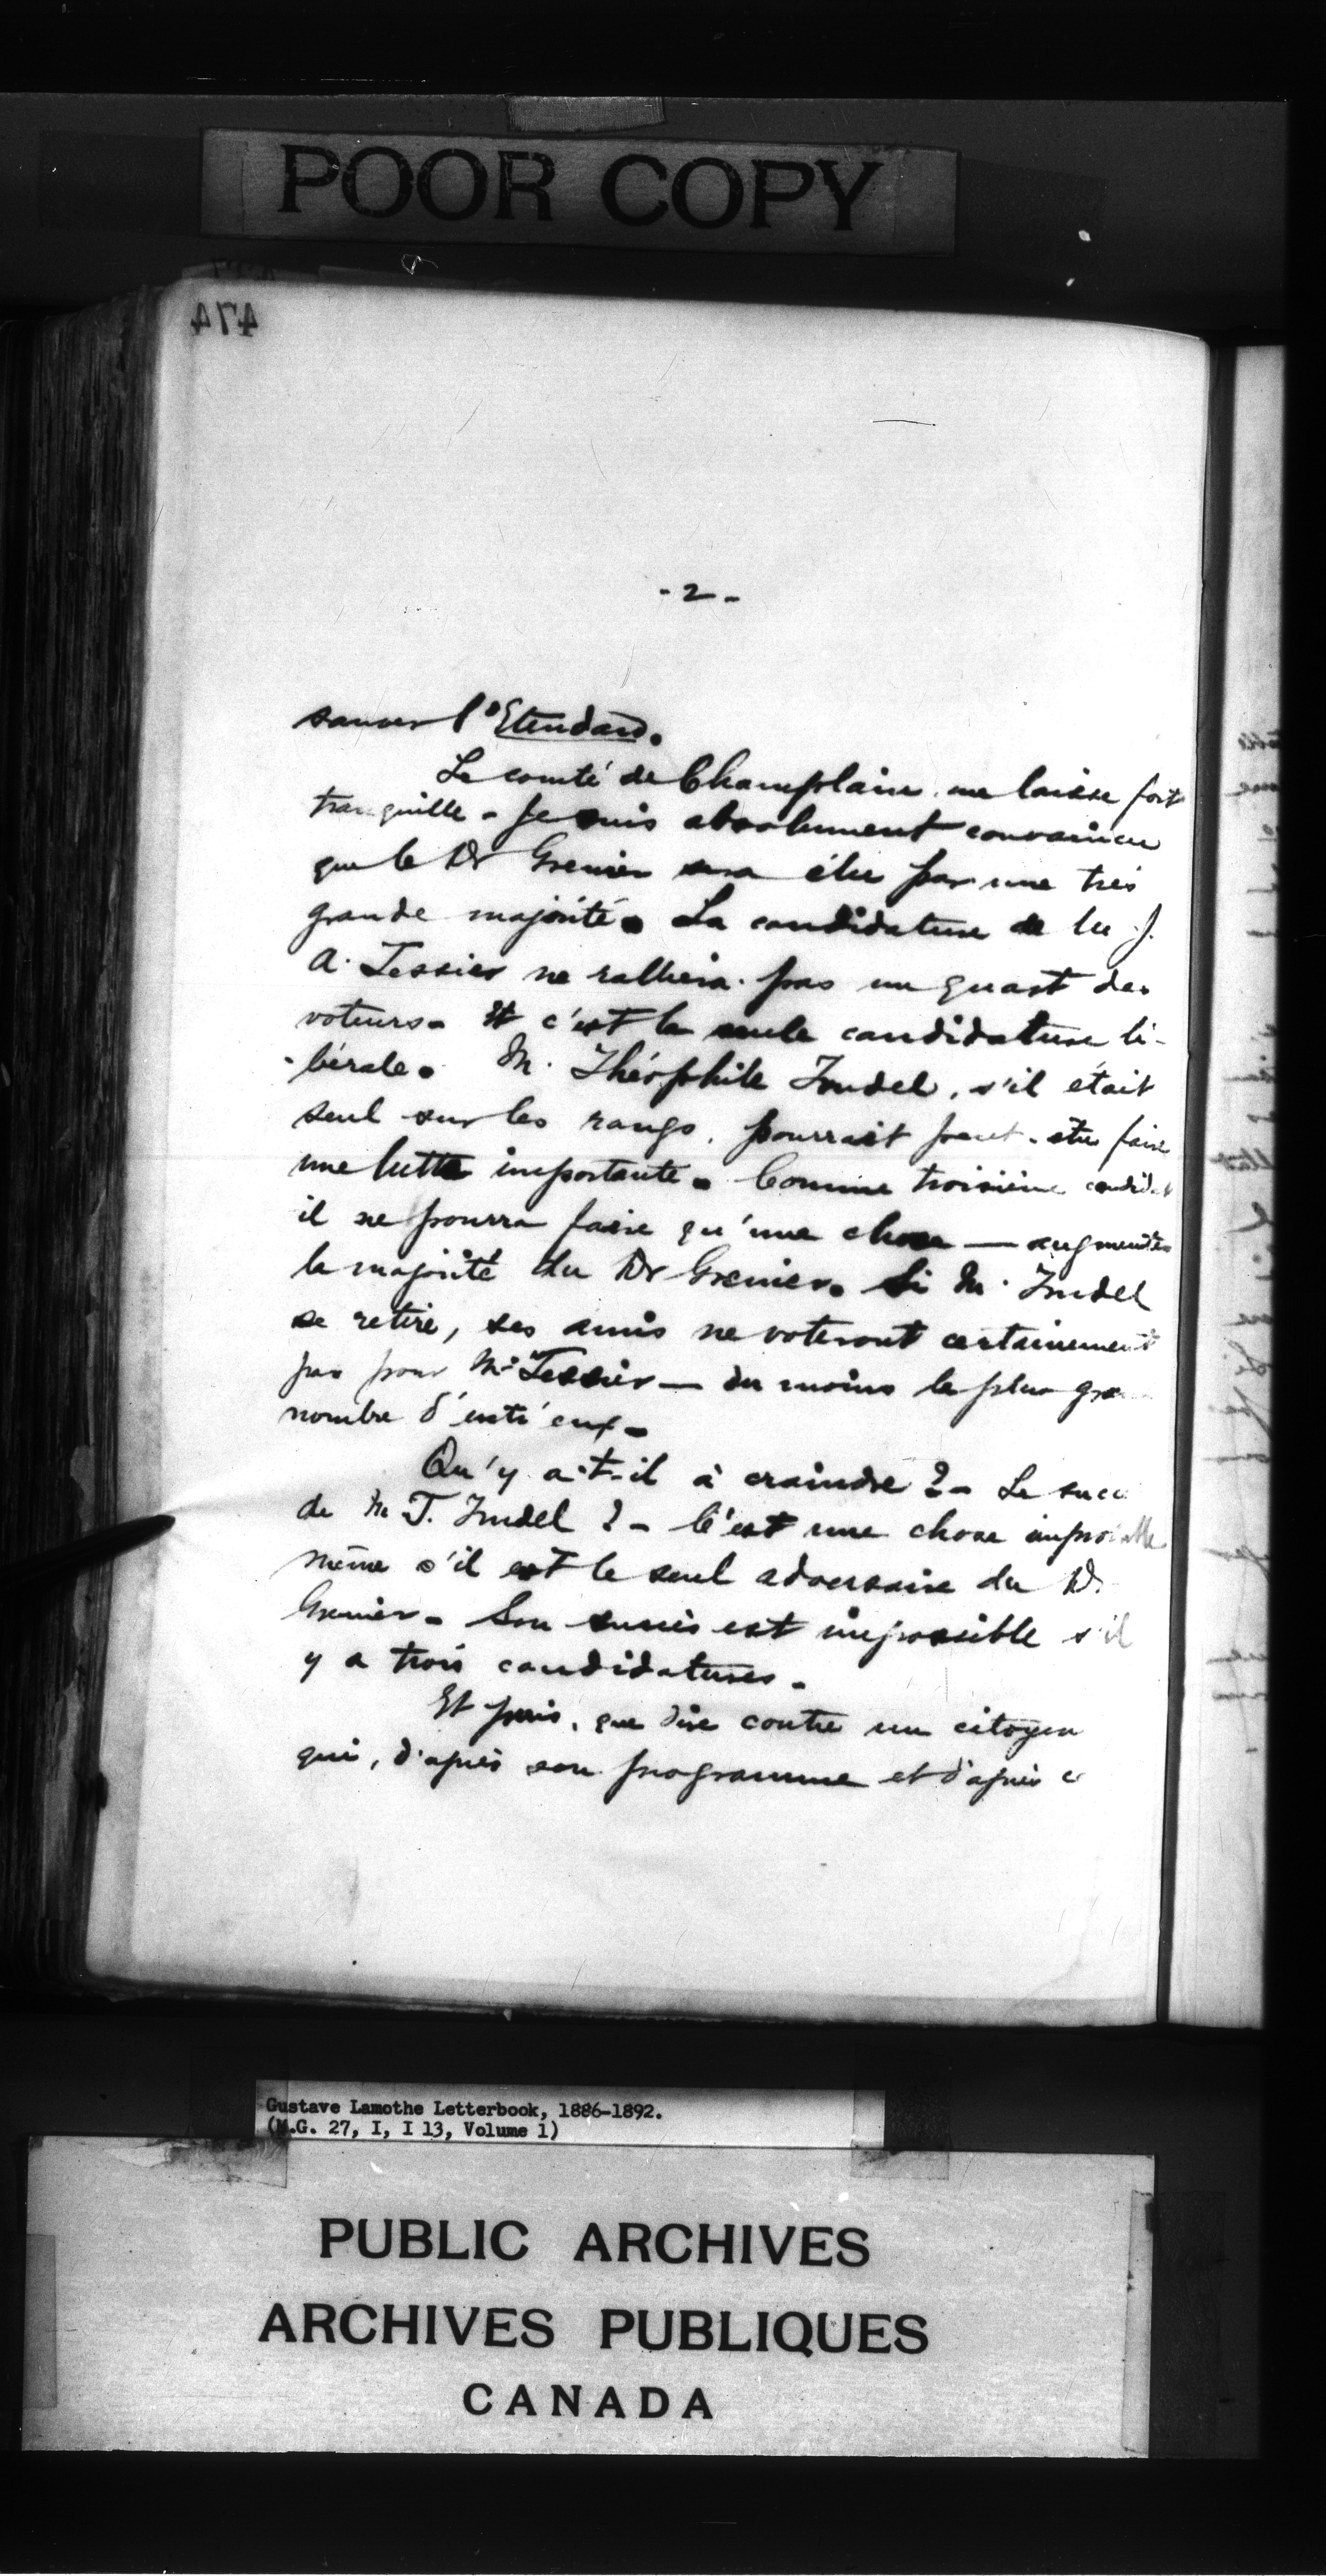 POOR COPY
474
- 2 -
sauver l'Etendard.
Le comté de Champlain me laisse fort
tranquille - Je suis absolument convaincu
que le Dr Grenier sera élu par une très
grande majorité. La candidature de M. J.
A. Tessier ne ralliera pas un quart des
voteurs - Et c'est la seule candidature li-
-bérale. M. Théophile Trudel, s'il était
seul sur les rangs, pourrait peut-être faire
une lutte importante. Comme troisième candidat
il ne pourra faire qu'une chose — augmenter
la majorité du Dr Grenier. Si M. Trudel
se retire, ses amis ne voteront certainement
pas pour Mr Tessier — du moins le plus gra
nombre d'entr'eux -
Qu'y a-t-il à craindre ? - Le succ
de M T. Trudel ? - C'est une chose improbable
même s'il est le seul adversaire du Dr
Grenier - Son succès est impossible s'il
y a trois candidatures -
Et puis, que dire contre un citoyen
qui, d'après son programme et d'après c
Gustave Lamothe Letterbook, 1886-1892.
(M.G. 27, I, I 13, Volume 1)
PUBLIC ARCHIVES
ARCHIVES PUBLIQUES
CANADA